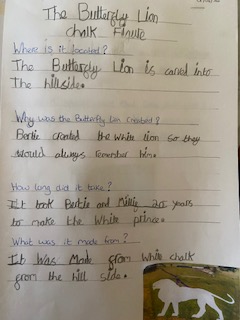 The Butterfly Lion
Chalk Figure
Where is it located?
The Butterfly Lion is carved into
The hillside.
Why was the Butterfly Lion created?
Bertie created the white lion so they
would always remember him.
How long did it take?
It took Bertie and Millie 20 years
to make the White prince.
What was it made from?
It was Made from white chalk
from the hill side.